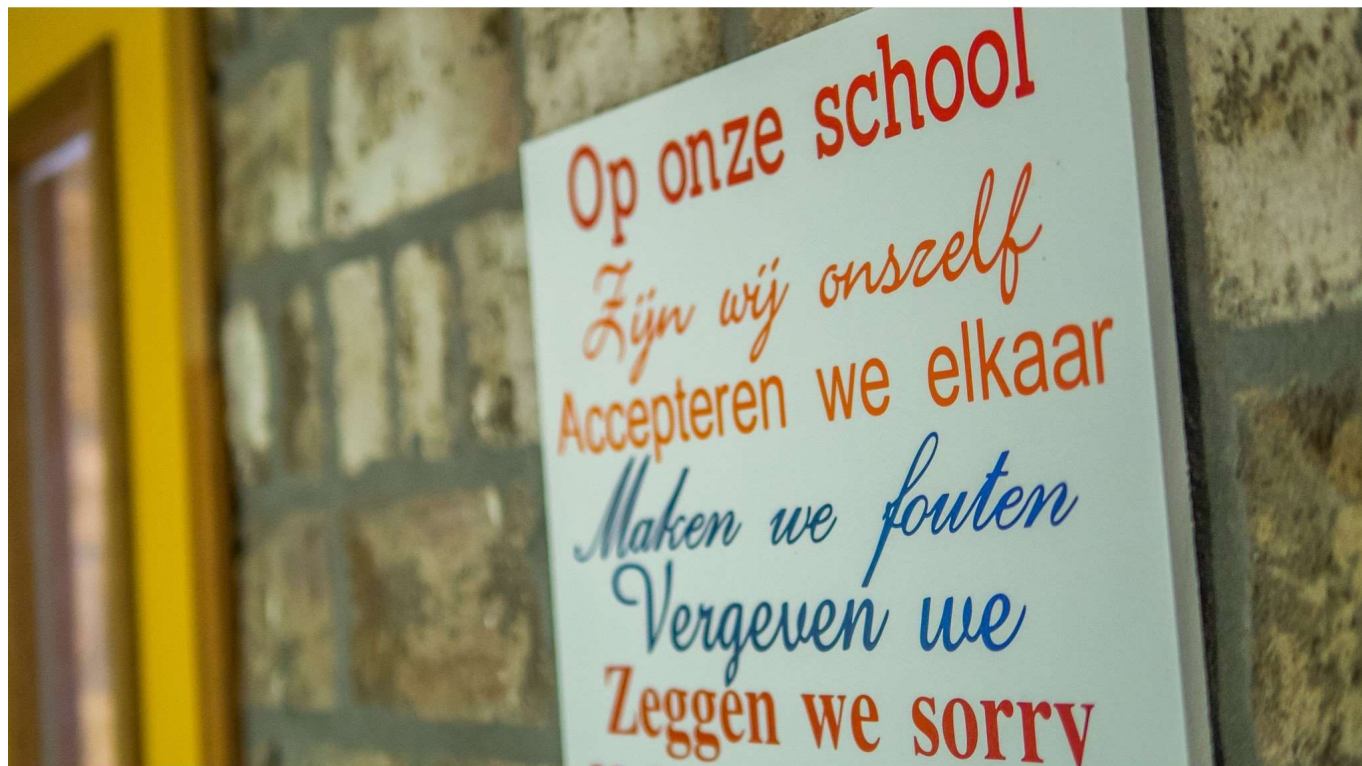 Op onze school
Zijn wij onszelf
Accepteren we elkaar
Maken we fouten
Vergeven we
Zeggen we sorry